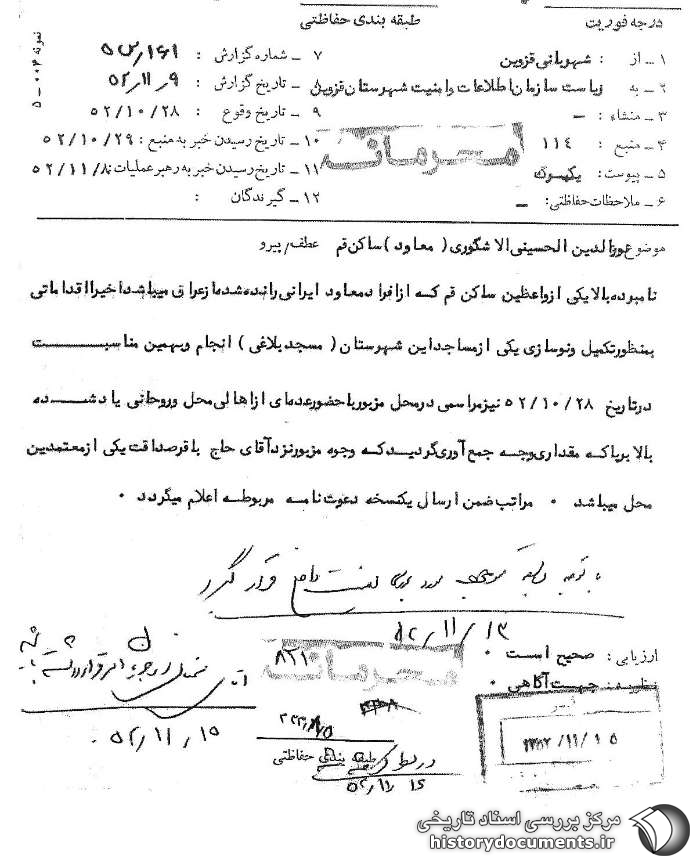 درجه فوریت
طبقه بندی حفاظتی
نمونه ۰۰۴ – ۵
۱ – از : شهربانی قزوین
۲ – به : ریاست سازمان اطلاعات وامنیت شهرستان قزوین
۳ – منشاء : –
۴ – منبع : ۱۱۴
۵ – پیوست: یکبرگ
۶ – ملاحظات حفاظتی: –
۷ – شماره گزارش :
۸ – تاریخ گزارش : ۵۲/۱۱/۹
۹ – تاریخ وقوع : ۵۲/۱۰/۲۸
۱۰ – تاریخ رسیدن خبر به منبع : ۵۲/۱۰/۲۹
۱۱ – تاریخ رسیدن خبر به رهبر عملیات : ۵۲/۱۱/۸
۱۲ – گیرندگان :
محرمانه
موضوع نورالدین الحسینی الاشگوری ( معاود ) ساکن قم عطف/پیرو
نامبرده بالا یکی ازواعظین ساکن قم که ازافراد معاود ایرانی رانده شده ازعراق میباشد اخیرا اقداماتی
بمنظورتکمیل ونوسازی یکی ازمساجد این شهرستان ( مسجد بلاغی ) انجام وبهمین مناسبت
درتاریخ ۵۲/۱۰/۲۸ نیزمراسمی درمحل مزبورباحضورعده‌ای ازاهالی محل وروحانی یاد شده
بالا برپا که مقداری وجه جمع آوری گردید که وجوه مزبور نزد آقای حاج باقرصداقت یکی ازمعتمدین
محل میباشد ۰ مراتب ضمن ارسال یکنسخه دعوت نامه مربوطه اعلام میگردد ۰
قرار گیرد
۵۲/۱۱/۱۳
ارزیابی : صحیح است ۰
نظریه : جهت آگاهی ۰
محرمانه
۸۲۱
۵۲/۱۱/۱۵
طبقه بندی حفاظتی
۵۲/۱۱/۱۵
مرکز بررسی اسناد تاریخی
historydocuments.ir